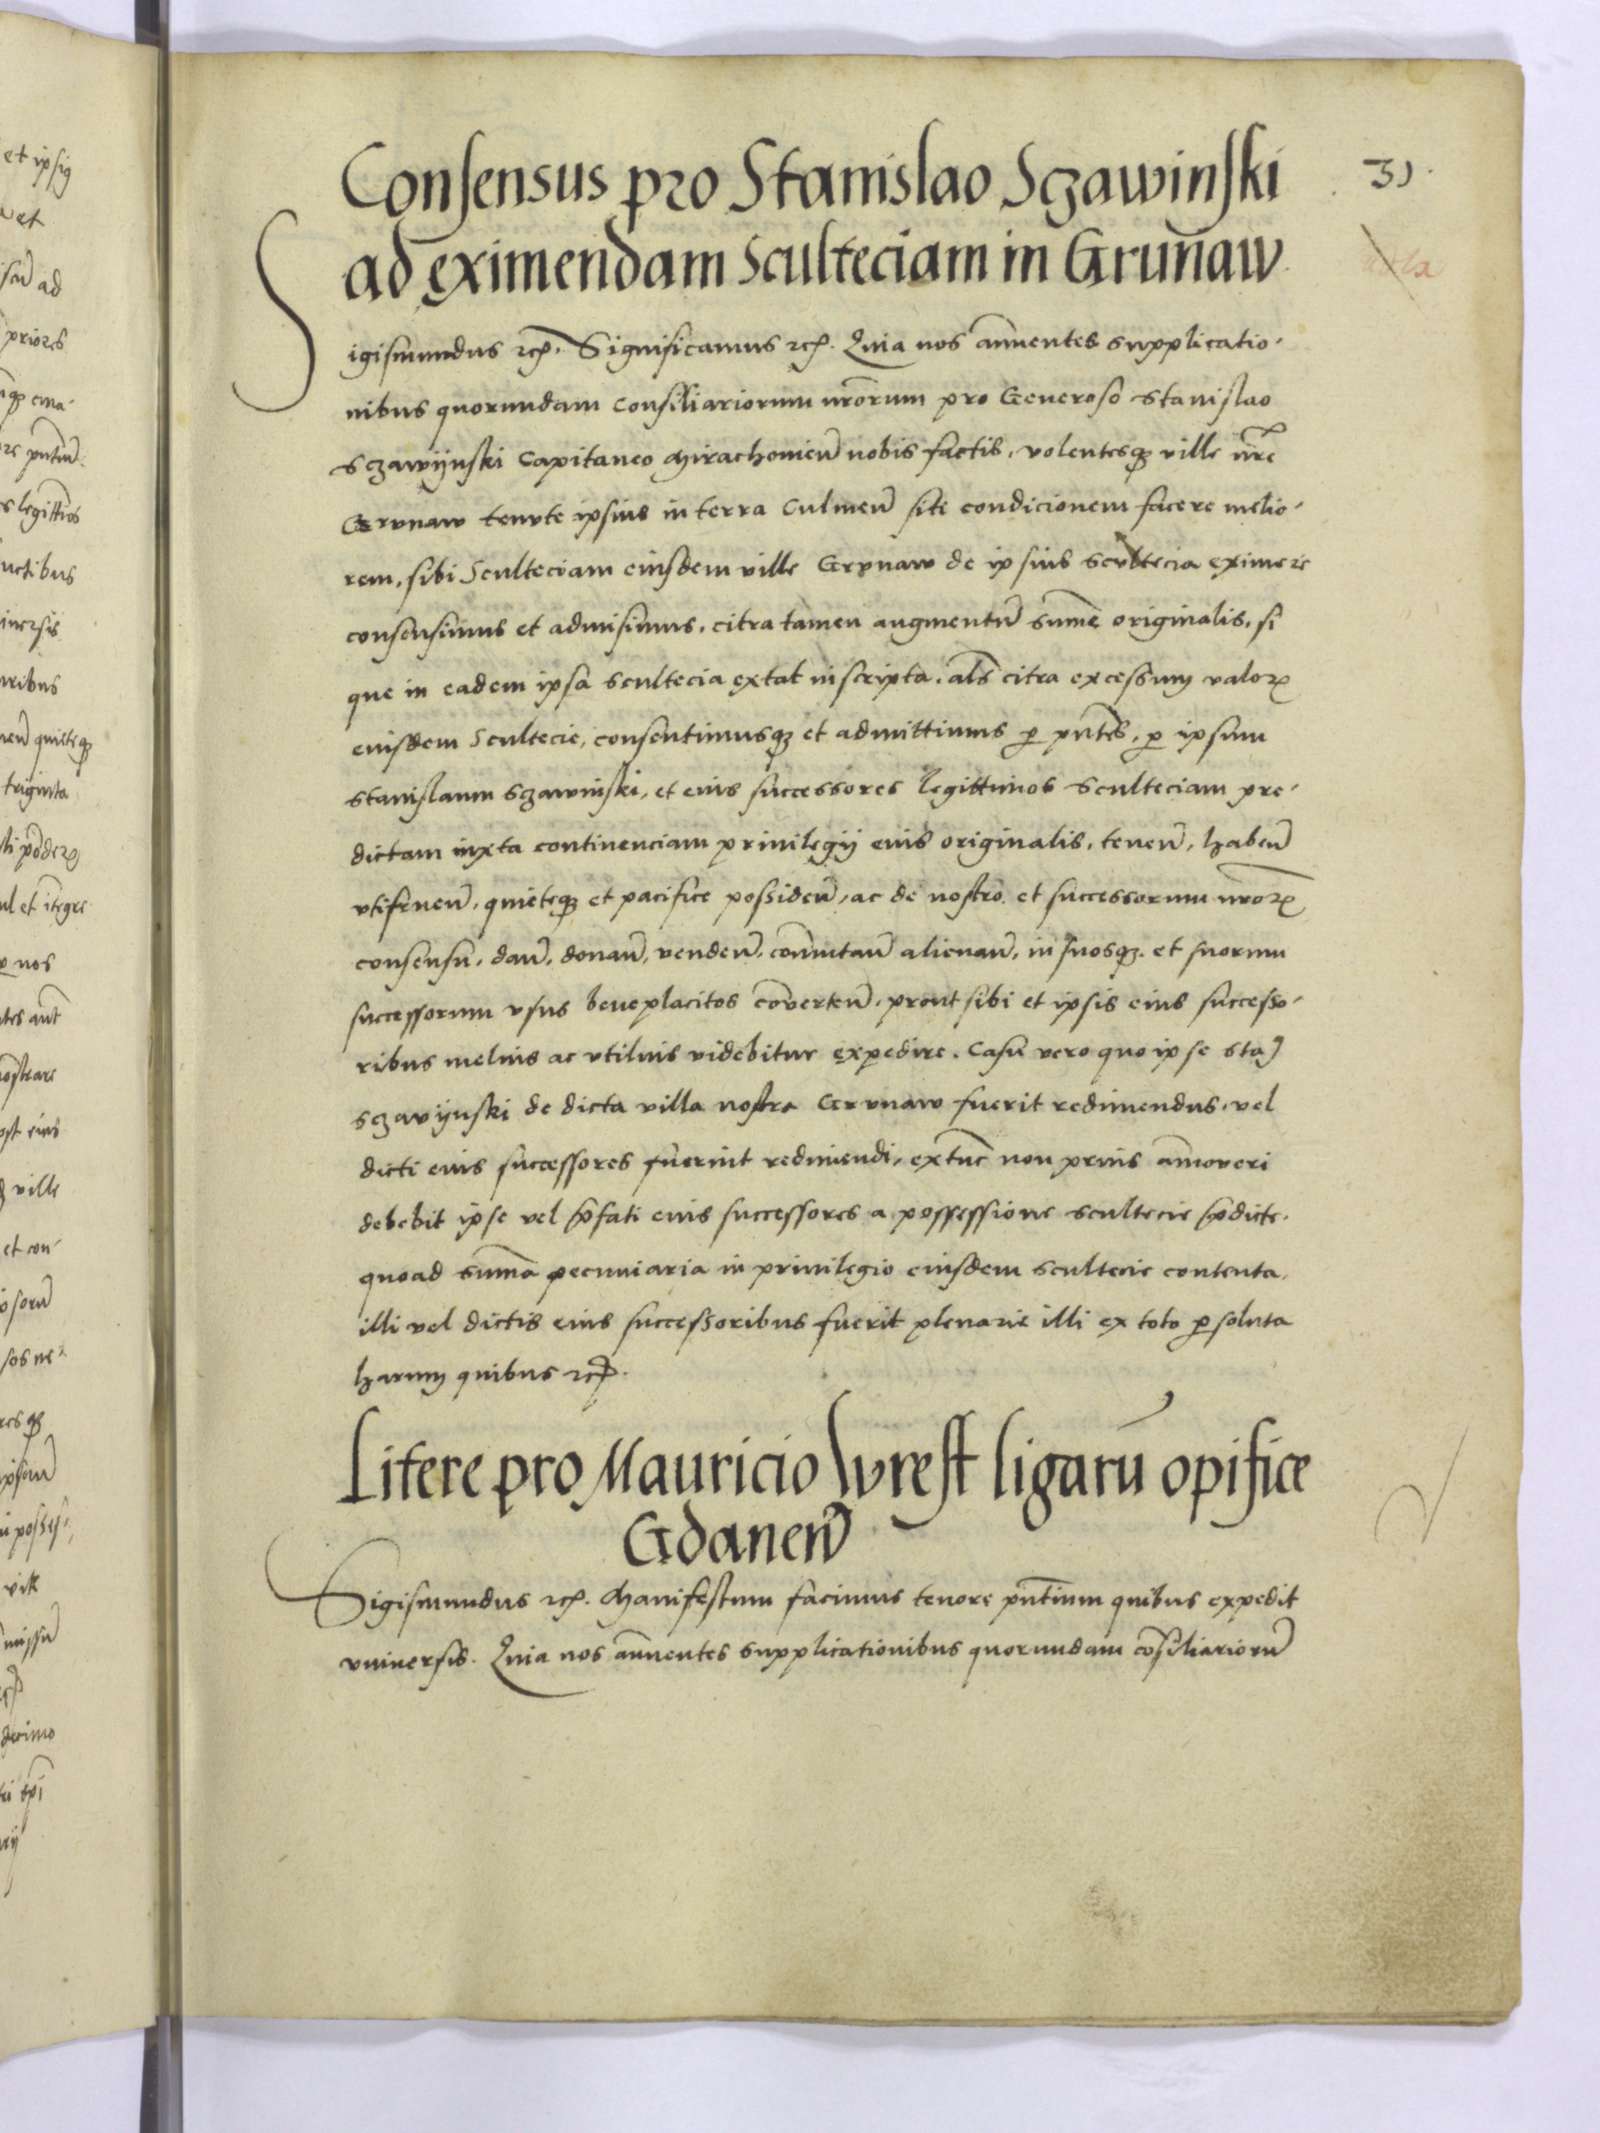 Consensus pro Stanislao Sczawinski
31.
ad eximendam Sculteciam in Grunaw
Sigismundus rcꝫ. Significamus rcꝫ. Quia nos an̄uentes supplicatio-
nibus quorundam Consiliariorum nr̄orum pro Generoso Stanislao
Sczawijnski Capitaneo Mirachouien̄ nobis factis, volentesqꝫ ville nr̄e
Grvnaw tenvte ipsius in terra Culmen̄ site condicionem facere melio-
rem, sibi Sculteciam eiusdem ville Grvnaw de ipsius scultecia eximere
consensimus et admisimus, citra tamen augmentū sum̄e originalis, si
que in eadem ipsa scultecia extat inscripta, als̄ citra excessum valorꝫ
eiusdem Scultecie, consentimusqꝫ et admittimus ꝑ pn̄tes, ꝑ ipsum
Stanislaum Sczawinski, et eius successores legittimos Sculteciam pre-
dictam iuxta continenciam priuilegij eius originalis, tenen̄, haben̄
vtifruen̄, quieteqꝫ et pacifice possiden̄, ac de nostro et successorum nr̄orꝫ
consensu, dan̄, donan̄, venden̄, com̄utan̄ alienan̄, in suosqꝫ et suorum
successorum vsus beneplacitos cōverten̄, prout sibi et ipsis eius successo-
ribus melius ac vtilius videbitur expedire. Casu vero quo ipse Sta)
Sczavijnski de dicta villa nostra Grvnaw fuerit redimendus, vel
dicti eius successores fuerint redimendi, extūc non prius am̄overi
debebit ipse vel p̄fati eius successores a possessione scultecie p̄dicte,
quoad sum̄a pecuniaria in priuilegio eiusdem scultecie contenta,
illi vel dictis eius successoribus fuerit plenarie illi ex toto ꝑsoluta
harum quibus rcꝫ.
Litere pro Mauricio Wrest ligarū opifice
Gdanen̄
Sigismundus rcꝫ. Manifestum facimus tenore pn̄tium quibus expedit
vniuersis. Quia nos an̄uentes supplicationibus quorundam cōsiliariorū